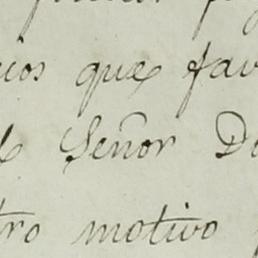 cios que fav
Señor D
tro motivo